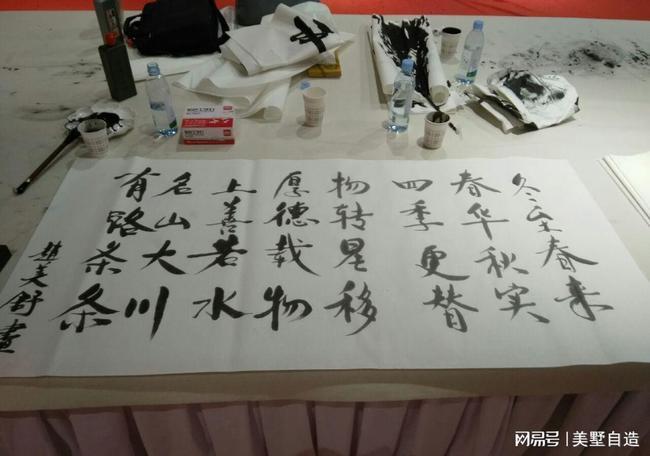 冬至春来
春华秋实
四季更替
物转星移
厚德载物
上善若水
名山大川
有路条条
舒
网易号 | 美墅自造